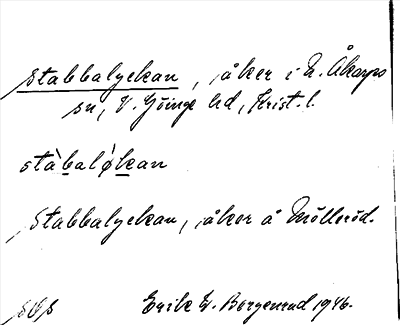 Stabbalyckan, åker i N. Åkarps
sn, V. Göinge hd, Krist. l.
stàbaló̱kan
Stabbalyckan, åker å Mölleröd.
Erik W. Borgenrud 1946.